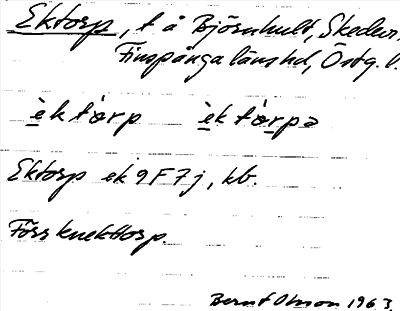 Ektorp, t å Björnhult, Skedevi,
Finspånga länshd, Östg. l.
èktårp èktårpa
Ektorp ek 9F7j, kb.
Förr knekttorp.
Bernt Olsson 1963.